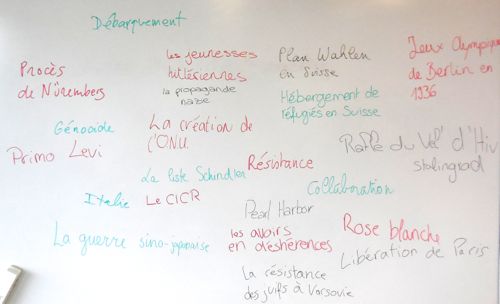 Débarquement
Procès
de Nüremberg
les jeunesses
hitlériennes
la propagande
nazie
Plan Wahlen
en Suisse
Jeux Olympiques
de Berlin en
1936
Hébergement de
réfugiés en Suisse
Génocide
La création de
l'ONU
Primo Levi
Rafle du Vel' d'Hiv
Stalingrad
Résistance
La liste Schindler
Collaboration
Italie
Le CICR
Pearl Harbor
La guerre sino-japonaise
les avoirs
en déshérences
Rose blanche
Libération de Paris
La résistance
des juifs à Varsovie